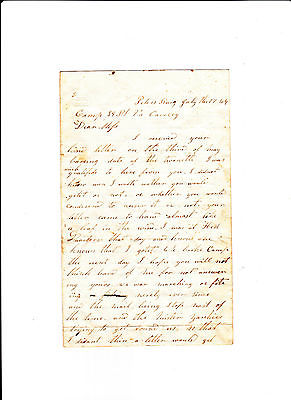 Petersburg July the 17 64
Camp 39 Va Cavalry
Dear Miss
I received your
kind letter on the third of may
bearing date of the twenteth I was
much
gratifide to here from you I didant
know when I wrote wether you would
get it or not or whether you would
condesend to answer it or not your
letter came to hand almost like
a leaf in the wind I was at Hed
Quarters that day and knows one
knows that I got it we broke Camp
the next day I hope you will not
think hard of me for not answer
ing yours we war marching or fite
ing nerely ever since
and the mail being stopt most of
the time and the hurten yankees
trying to get round us so that
I didant think a letter would get